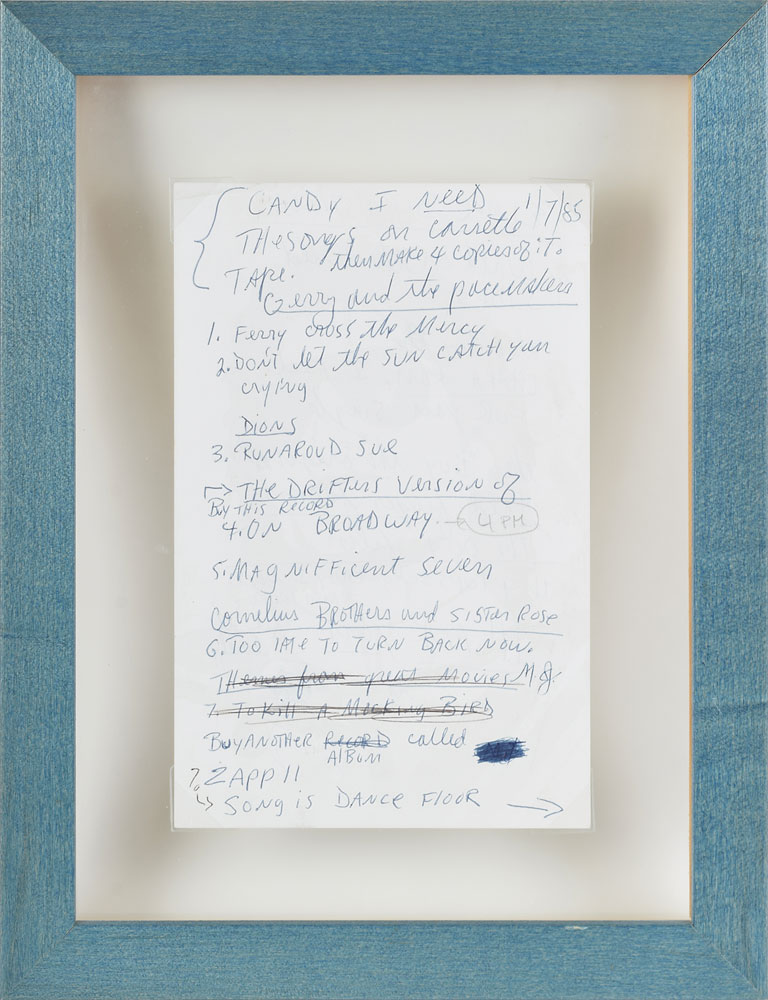 CANDY I NEED 1/7/85
THesongs on cassette
TApe. then MAke 4 copies of iT.
Gerry and the pacemakers
1. Ferry cross the Mercy
2. DON'T let the SUN CATCH you
crying
DIONS
3. RUNAROUD SUE
→ THE DRiFTers Version of
Buy THIS RECORD
4. ON BROADWAY. → 4 PM
5. MAgNIFFicent seven
Cornelius BROTHers and SISTer Rose
6. TOO lATe TO TURN BACK NOW.
THemes from great Movies
7. To Kill A Mocking BIRD
Buy ANOTHER RECORD called
AlBum
7. ZAPP II
↳ SONg is DANCE FlOOR →